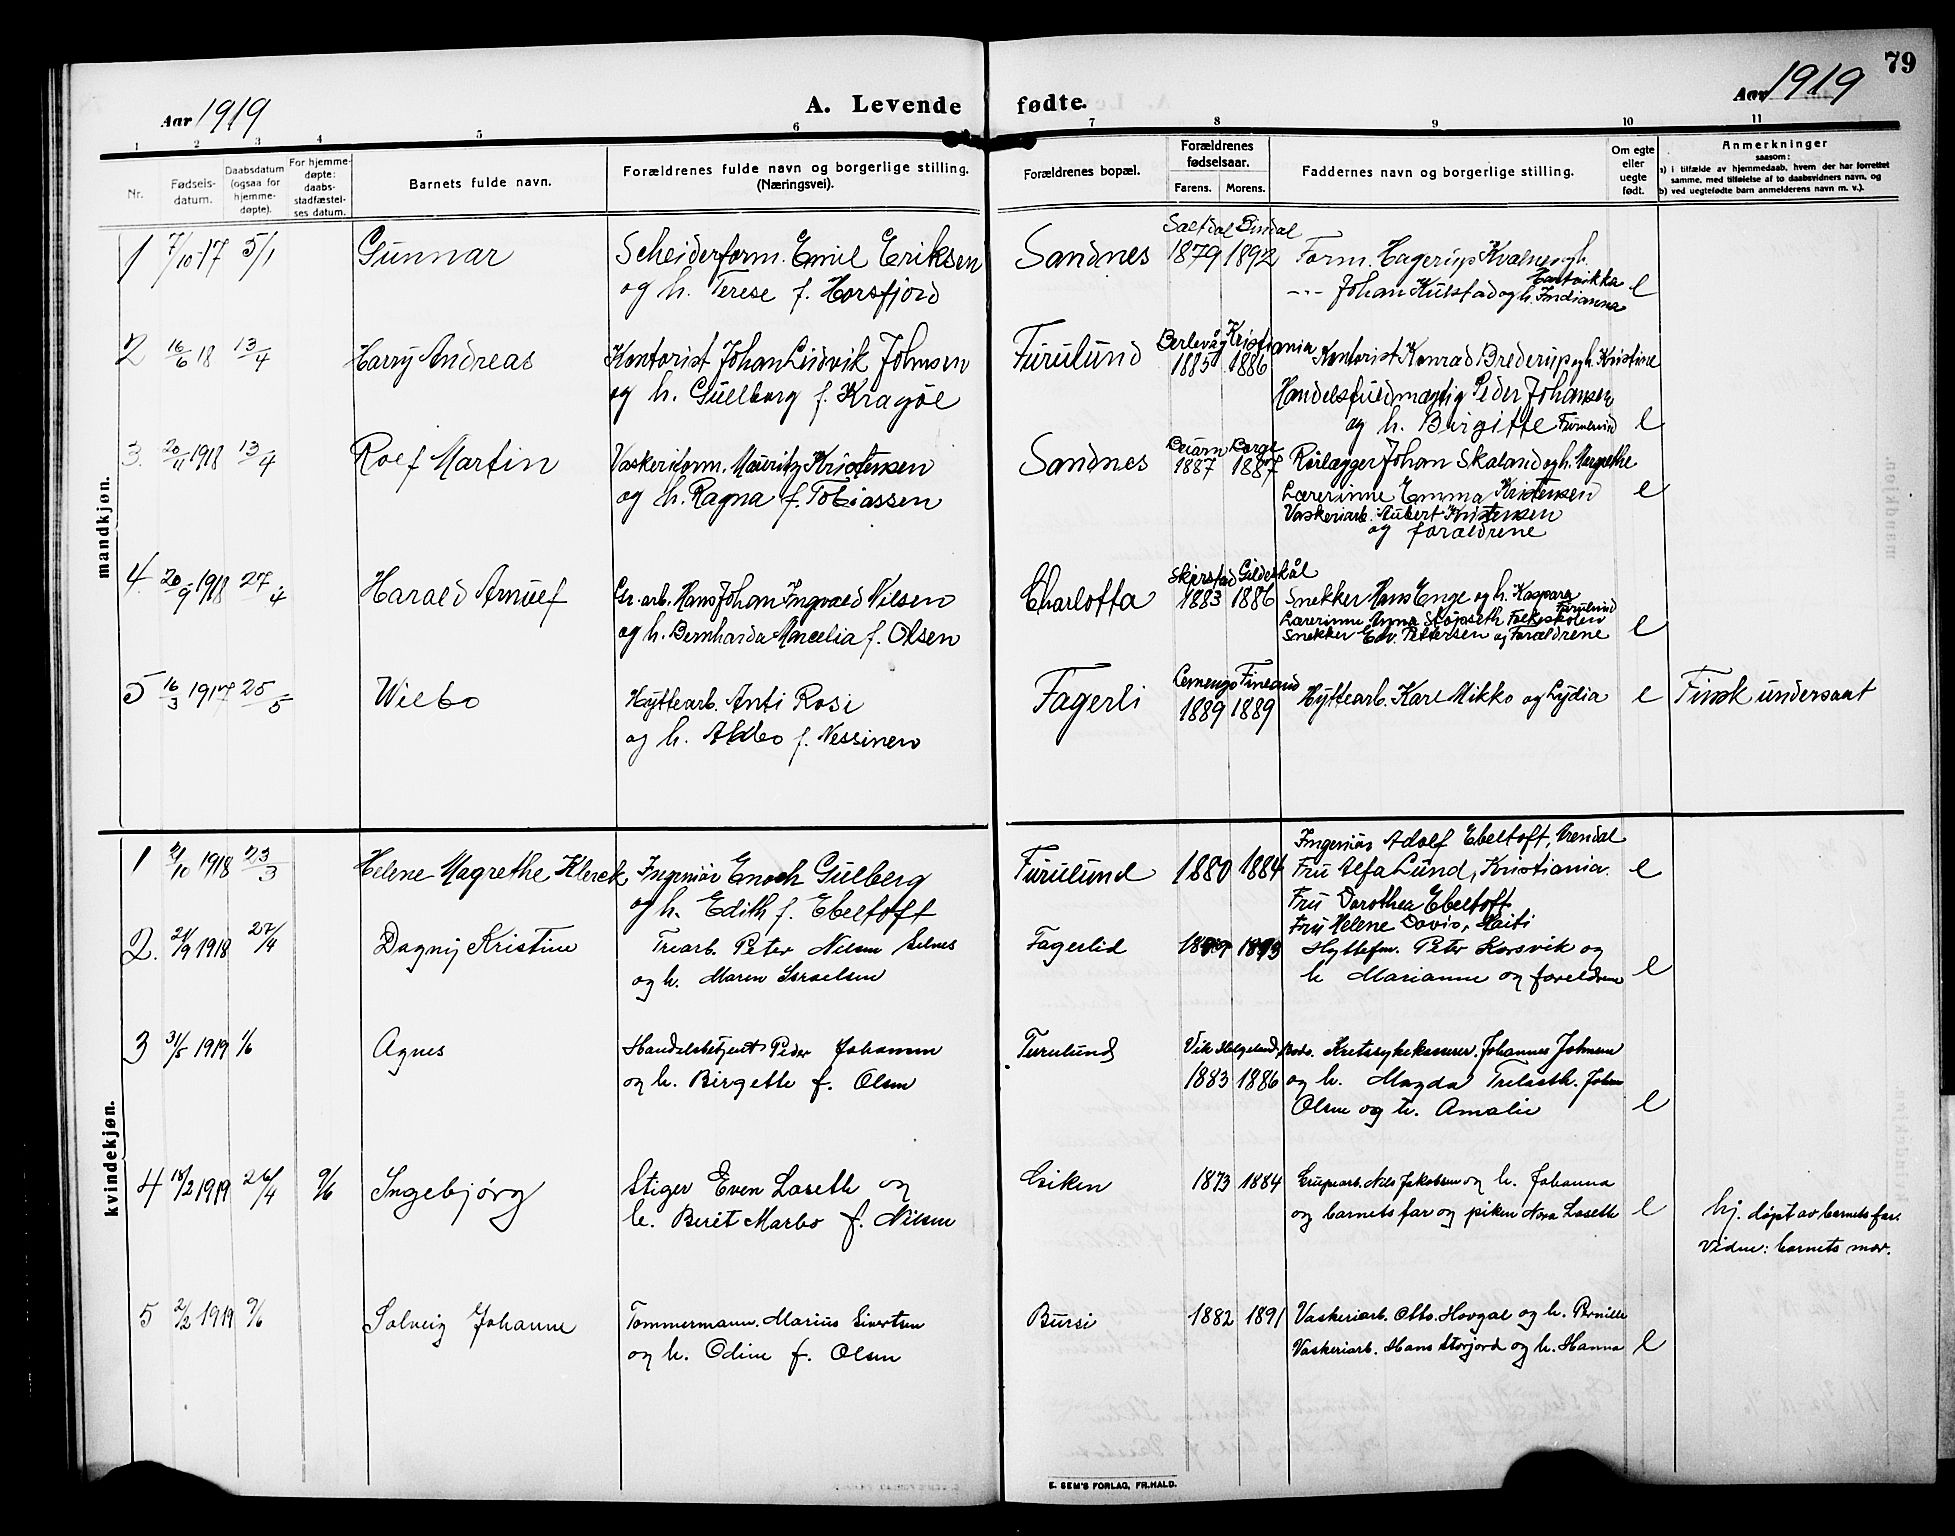 79
Aar 1919
A. Levende fødte.
Aar 1919
1 2 3 4 5 6 7 8 9 10 11
Nr.
Fødsels-
datum.
Daabsdatum
(ogsaa for
hjemme-
døpte).
For hjemme-
døpte:
daabs-
stadfæstel-
ses datum.
Barnets fulde navn.
Forældrenes fulde navn og borgerlige stilling.
(Næringsvei).
Forældrenes bopæl.
Forældrenes
fødselsaar.
Farens. Morens.
Faddernes navn og borgerlige stilling.
Om egte
eller
uegte
født.
Anmerkninger
saasom:
a) i tilfælde av hjemmedaab, hvem der har forrettet
samme, med tilføielse af to daabsvidners navn, og
b) ved uegtefødte barn anmelderens navn m. v.).
mandkjøn.
1 7/10-17 5/1 Gunnar
Scheiderform. Emil Eriksen
og h. Terese f. Horsfjord
Sandnes
Saltdal Bindal
1879 1892
Form. Hagerup Kvalnes og h.
Hartvikka
--- Johan Kulstad og h. Indianna
e
2 16/6 18 13/4 Harry Andreas
Kontorist Johan Ludvik Johnsen
og h. Gulborg f. Kragøe
Furulund
Berlevåg Kristiania
1885 1886
Kontorist Konrad Brederup og h. Kristine
Handelsfuldmægtig Peder Johansen
og h. Birgitte Furulund
e
3. 20/11 1918 13/4 Rolf Martin
Vaskeriform. Mauritz Kristensen
og h. Ragna f. Tobiassen
Sandnes
Beiarn Borge
1887 1887
Rørlægger Johan Skaland og h. Margrethe
Lærerinne Emma Kristensen
Vaskeriarb. Aubert Kristensen
og forældrene
e
4. 20/9 1918 27/4 Harald Arnulf
Gr. arb. Hans Johan Ingvald Nilsen
og h. Bernharda Marcelia f. Olsen
Charlotta
Skjerstad Gildeskål
1883 1886
Snekker Hans Enge og h. Kaspara
Furulund
Lærerinne Anna Støpseth Folkeskolen
Snekker Edv. Pettersen og Forældrene
e
5 16/3 1917 25/5 Wilbo
Hyttearb. Anti Rosi
og h. Ahlbo f. Nessinen
Fagerli
Finland
1889 1889
Hyttearb. Karl Mikko og Lydia
e
Finsk undersaat
kvindekjøn.
1 2/10 1918 23/3 Helene Magrethe Klerck
Ingeniør Enoch Gulberg
og h. Edith f. Ebeltoft
Furulund
1880 1884
Ingeniør Adolf Ebeltoft, Arendal
Fru Alfa Lund, Kristiania.
Fru Dorothea Ebeltoft
Fru Helene Davis, Haiti
e
2. 21/9 1918 27/4 Dagny Kristine
Triarb. Peter Nilsen Selnes
og h. Maren Israelsen
Fagerlid
1893
Hyttefm. Peter Korsvik og
h Marianne og foreldrene
e
3 31/5 1919 1/6 Agnes
Handelsbetjent Peder Johansen
og h. Birgette f. Olsen
Furulund
Vik Helgeland, Bodø.
1883 1886
Kretssykekasserer. Johannes Johnsen
og h. Magda Trelasth. Johan
Olsen og h. Amalie
e
4 18/2 1919 26/4 9/6 Ingebjørg
Stiger Even Laseth og
h. Berit Marbo f. Nilsen
1873 1884
Grupearb. Nils Jakobsen og h. Johanna
og barnets far og piken Nora Laseth
e
hj. døpt av barnets far.
Vidne: barnets mor.
5 2/2 1919 9/6 Solveig Johanne
Tommermann. Marius Sivertsen
og h. Odine f. Olsen
Bursi
1882 1891
Vaskeriarb. Otto Hovgal og h. Pernille
Vaskeriarb. Hans Storjord og h. Hanna
e
E. SEM'S FORLAG, FR.HALD.